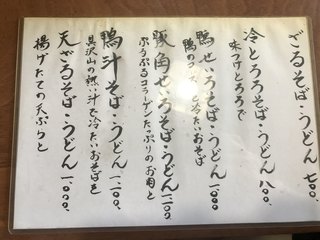 ざるそば・うどん 七〇〇、
冷とろろそば・うどん 八〇〇、
味つけとろろで
鴨せいろそば・うどん 一、一〇〇、
鴨の
冷たいおそば
豚角せいろそば・うどん 一、二〇〇、
ぷるぷるコラーゲンたっぷりのお肉と
鴨汁そば・うどん 一、二〇〇、
具沢山の熱い汁で冷たいおそばを
天ざるそば・うどん 一、〇〇〇、
揚げたての天ぷらと